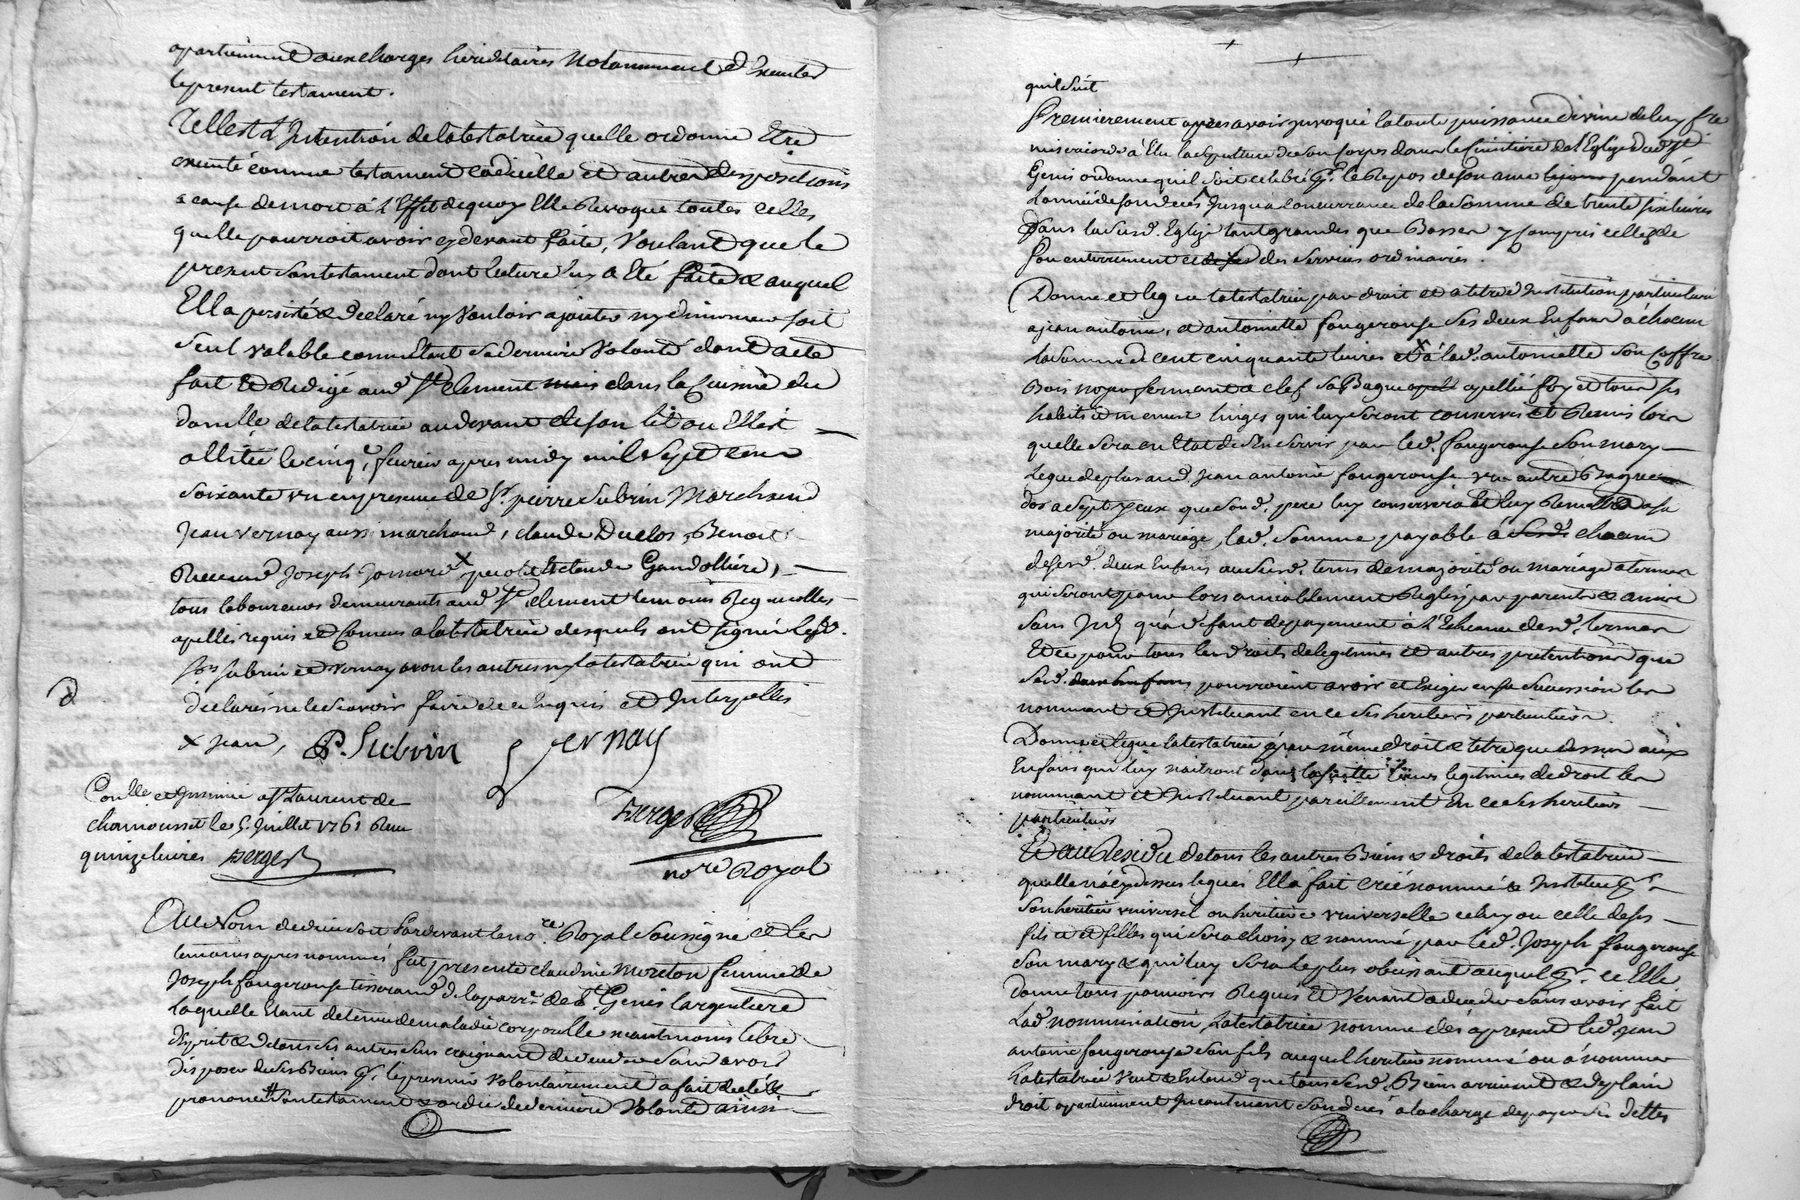 apartiennent aux charges hereditaires Notamment d'Executer
le present testament.
Telle est L'Intention de la testatrice quelle ordonne Etre
executé comme testament codicille et autres dispositions
a cause de mort à l'Effet de quoy Elle Revoque toutes celles
quelle pourroit avoir cy devant faite, Voulant que le
present son testament dont lecture luy a Eté faite & auquel
Ella persisté & declaré ny Vouloir ajouter ny diminuer soit
seul valable comme Etant sa derniere Volonté dont acte
fait et Redigé aud St Clement dans la Cuisine du
domille de la testatrice au devant de son lit ou Elle est
allitée le cinq.e fevrier apres midy mil sept cens
soixante un en presence de Sr. pierre Subrin Marchand
Jean vernay aussi marchand, claude Duclos, Benoit
Joseph Gomard Gandolliere,
tous laboureurs demeurants aud St Clement temoins Requis
apellés requis et Connus a la testatrice desquels ont signé lesd.
Srs Subrin et vernay non les autres ny la testatrice qui ont
declarés ne le sçavoir faire de ce Enquis et Interpellés
x Jean, P. Subrin Vernay
Conllé et Insinué a St Laurent de
chamousset le 5. Juillet 1761 Reçu
quinze livres Berger
Berger
nore Royal
Au Nom de dieu soit Pardevant le no.re Royal Soussigné et les
temoins apres nommés fut presente claudine Moreton femme de
Joseph fougerouse tisserand de la parr.e de St. Genis largentiere
laquelle Etant detenue de maladie corporelle neantmoins libre
d'Esprit & de tous ses autres sens craignant de deceder sans avoir
disposer de ses Biens le present Volontairement a fait dicté &
prononcé son testament & ordre de derniere Volonté ainsi
quil suit
Premierement apres avoir invoqué la toute puissance divine de luy fre
misericorde à Elu la sepulture de son corps dans le Cimitiere de l'Eglise dud St
Genis ordonne quil soit celebré pr. le Repos de son ame pendant
L'année de son deces Jusqua concurrance de la somme de trente six livres
Dans lasusd. Eglise tant grandes que Basses y compris celles de
son enterrement et des services ordinaires.
Donne et legue la testatrice par droit et a titre d'Institution particuliere
a jean antoine, et antoinette fougerouse ses deux Enfans a chacun
la somme de cent cinquante livres et à lad. antoinette son Coffre
Bois noyer fermant a clef sa Bague apellé foy et tous ses
habits et menus linges qui luy seront conservés et Remis lors
quelle sera en Etat de s'En servir par led. fougerouse son mary
Legue de plus aud. Jean antoine fougerouse une autre Bague
dor a sept yeux que sond. pere luy conservera et luy Remettra a sa
majorité ou mariage, lad. somme payable à chacun
de sesd. deux Enfans au susd. tems de majorité ou mariage a termes
qui seront pour lors amiablement Reglés par parents & amis
sans Intt. qu'à defaut de payement à l'Echeance desd. termes
et ce pour tous les droits de legitimes et autres pretentions que
sesd. deux Enfans pourroient avoir et Exiger en sa succession les
nommant et Instituant en ce ses heritiers particuliers.
Donne et legue la testatrice par même droit & titre que dessus aux
Enfans qui luy naitront dans la suitte leurs legitimes de droit les
nommant et Instituant pareillement En ce ses heritiers
particuliers
Et au Residu de tous les autres Biens & droits de la testatrice
quelle n'a cy dessus legués Ella fait créé nommé & Institué pr.
son heritier universel ou heritiere universelle celuy ou celle de ses
fils et filles qui sera choisy & nommé par led. Joseph fougerouse
son mary & qui luy sera le plus obeissant auquel pr. ce Elle
donne tous pouvoirs Requis et Venant a deceder sans avoir fait
lad. nommination, La testatrice nomme dés apresent led. jean
antoine fougerouse son fils auquel heritier nommé ou a nommer
la testatrice Veut & Entend que tous sesd. Biens arrivent & de plain
droit apartiennent Incontinent son deces a la charge de payer ses dettes